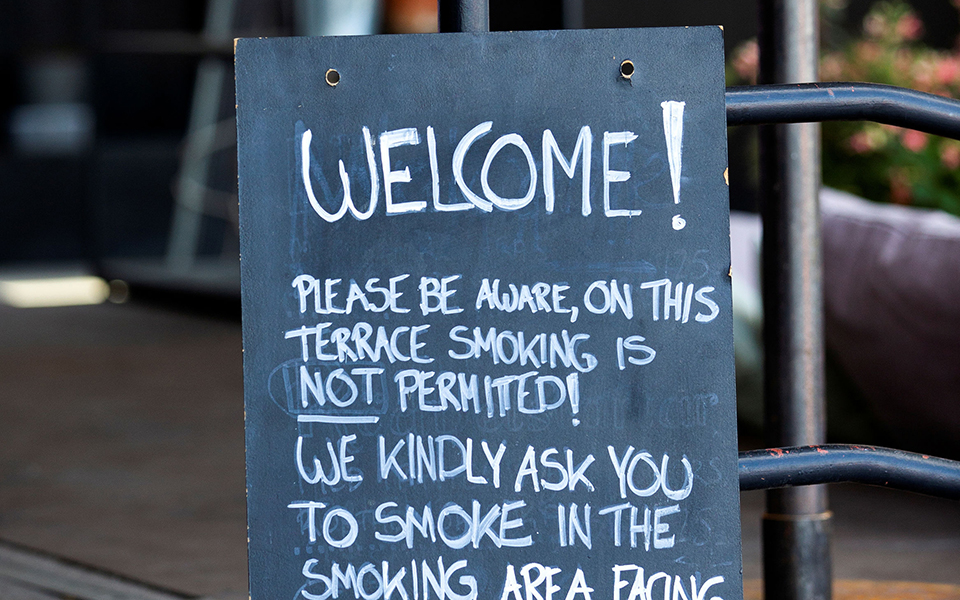 WELCOME!
PLEASE BE AWARE, ON THIS
TERRACE SMOKING IS
NOT PERMITED!
WE KINDLY ASK YOU
TO SMOKE IN THE
SMOKING AREA FACING